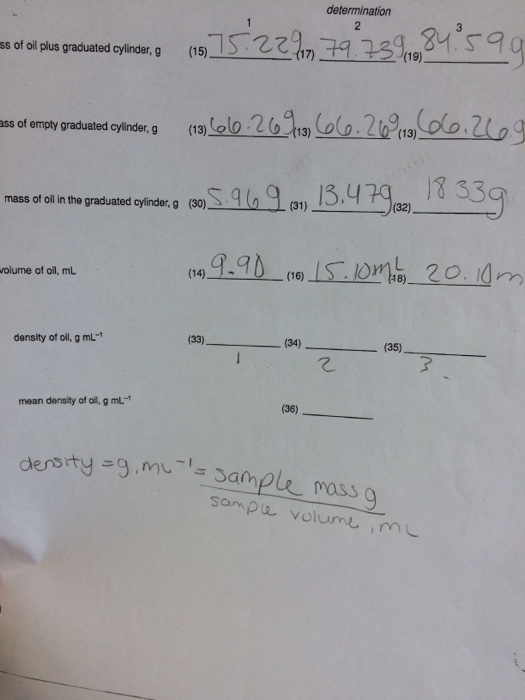 determination
1 2 3
ss of oil plus graduated cylinder, g (15) 75.22g (17) 79.73g (19) 84.59g
ass of empty graduated cylinder, g (13) 66.26g (13) 66.26g (13) 66.26g
mass of oil in the graduated cylinder, g (30) 5.96g (31) 13.47g (32) 18.33g
volume of oil, mL (14) 9.90 (16) 15.10mL (18) 20.10m
density of oil, g mL⁻¹ (33) (34) (35)
1 2 3
mean density of oil, g mL⁻¹ (36)
density = g.mL⁻¹ = sample mass g
sample volume, mL